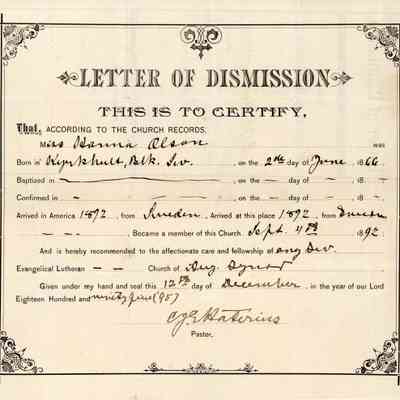 LETTER OF DISMISSION
THIS IS TO CERTIFY,
That, ACCORDING TO THE CHURCH RECORDS,
Miss Hanna Olson was
Born in Kyrkhult, Blk. Sw. , on the 2nd day of June , 1866.
Baptized in — , on the — day of — , 18 —
Confirmed in — , on the — day of — , 18 —
Arrived in America 1892 , from Sweden , Arrived at this place 1892 , from Sweden
— — — , Became a member of this Church Sept 4th 1892.
And is hereby recommended to the affectionate care and fellowship of any Sw.
Evangelical Lutheran — — Church of Aug. Synod
Given under my hand and seal this 12th day of December , in the year of our Lord
Eighteen Hundred and ninety five (95)
Pastor.